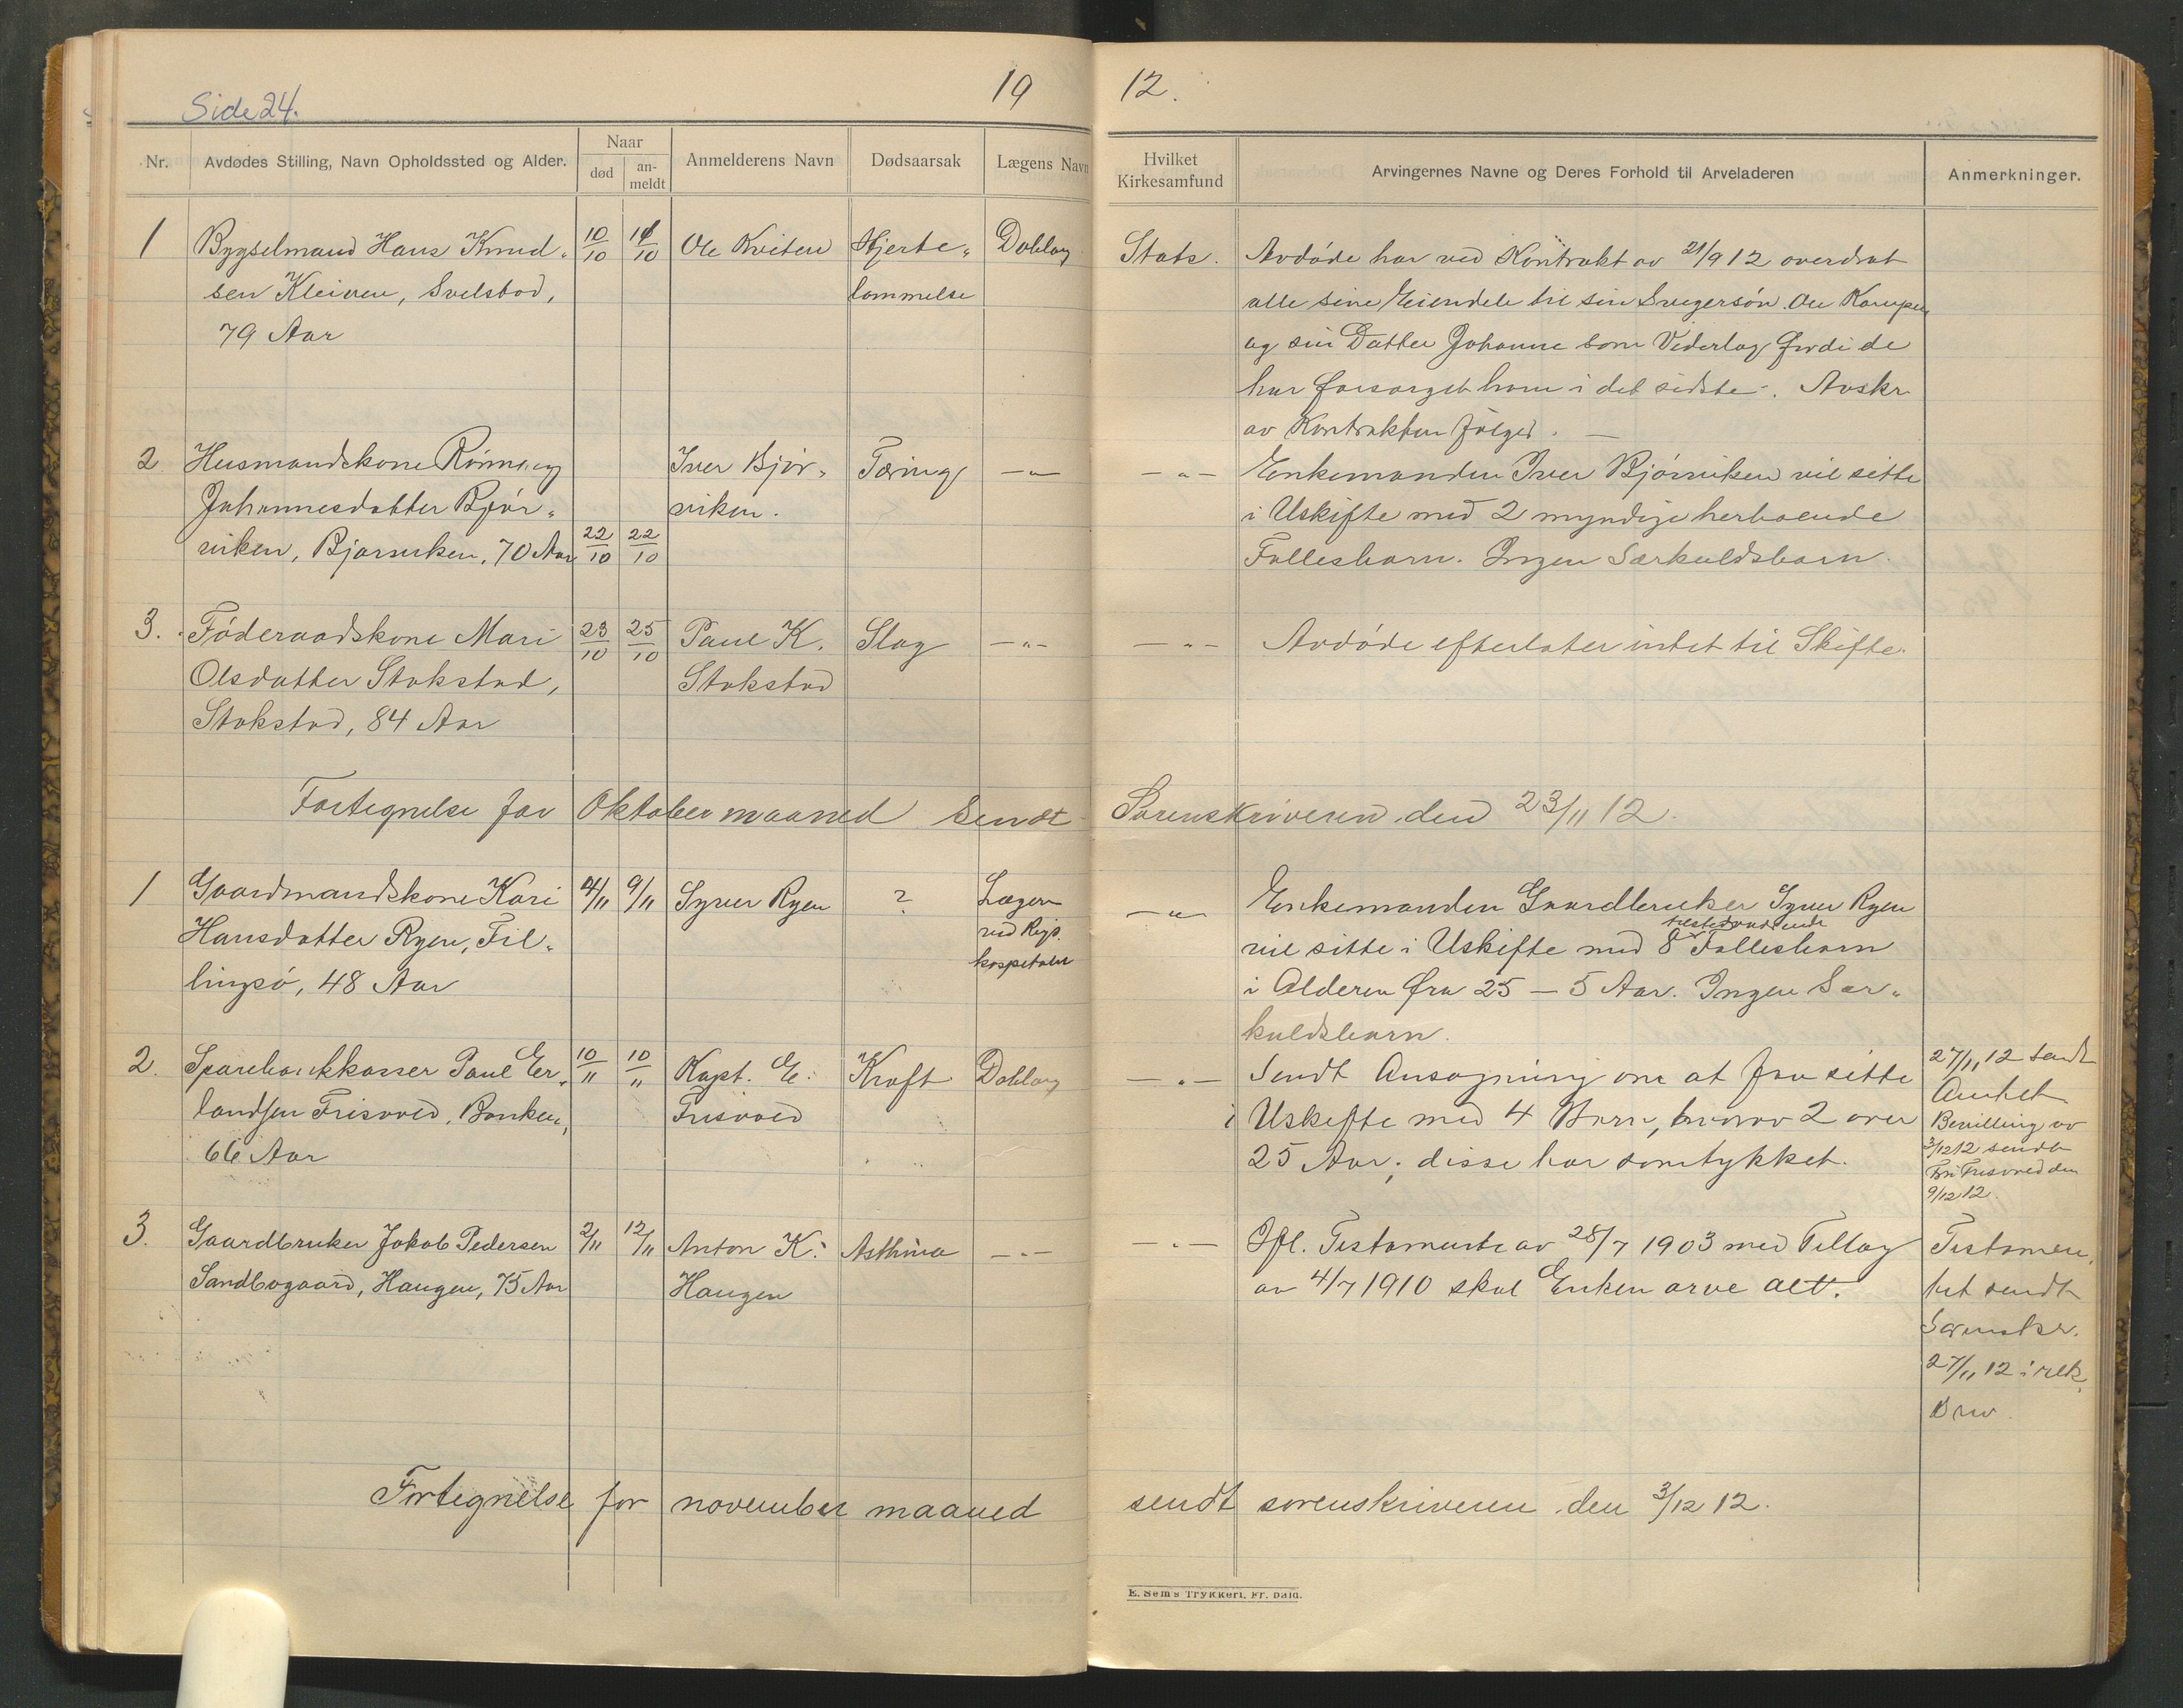 Side 24.
19 12.
Nr.
Avdødes Stilling, Navn Opholdssted og Alder.
Naar
død
an-
meldt
Anmelderens Navn
Dødsaarsak
Lægens Navn
Hvilket
Kirkesamfund
Arvingernes Navne og Deres Forhold til Arveladeren
Anmerkninger.
1 Bygselmand Hans Knud- 10/10 14/10 Ole Kviten Hjerte- Dobloug Stats. Avdøde har ved Kontrakt av 21/9 12 overdrat
sen Kleiven, Selsbod, lammelse alle sine Eiendele til sin Svigersøn Ole Kampen
79 Aar og sin Datter Johanne som Vederlag fordi de
har forsørget ham i det sidste. Avskr.
av Kontrakten følger. —
2 Husmandskone Rønnaug Iver Bjør- Tæring —"— —"— Enkemanden Iver Bjørviken vil sitte
Johannesdatter Bjør- viken. i Uskifte med 2 myndige herboende
viken, Bjørviken, 70 Aar 22/10 22/10 Fellesbarn. Ingen Særkuldsbarn.
3. Føderaadskone Mari 23/10 25/10 Paul K. Slag —"— —"— Avdøde efterlater intet til Skifte.
Olsdatter Stokstad, Stokstad
Stokstad, 84 Aar
Fortegnelse for Oktober maaned sendt Sorenskriveren den 23/11 12.
1 Gaardmandskone Kari 4/11 9/11 Syver Ryen ? Lægen —"— Enkemanden Gaardbruker Syver Ryen
Hansdatter Ryen, Fil- ved Rigs- vil sitte i Uskifte med 8 Fellesbarn
lingsø, 48 Aar hospitalet i Alderen fra 25 – 5 Aar. Ingen Sær-
kuldsbarn.
2. Sparebankkasser Paul Er- 10/11 10/11 Kapt. E. Kræft Dobloug —"— Sendt Ansøgning om at faa sitte 27/11 12 sendt
landsen Frisvold, Banken, Frisvold i Uskifte med 4 Barn, hvorav 2 over Amtet
66 Aar 25 Aar; disse har samtykket. Bevilling av
3/12 12 sendt
Fru Frisvold den
9/12 12.
3. Gaardbruker Jakob Pedersen 2/11 12/11 Anton K. Asthma —"— —"— Ifl. Testamente av 28/7 1903 med Tillæg Testamen-
Sandbogaard, Haugen, 75 Aar Haugen av 4/7 1910 skal Enken arve alt. tet sendt
Sorenskr.
27/11 12 i rek.
Brev.
Fortegnelse for november maaned sendt sorenskriveren den 3/12 12.
E. Sem's Trykkeri, Fr. hald.